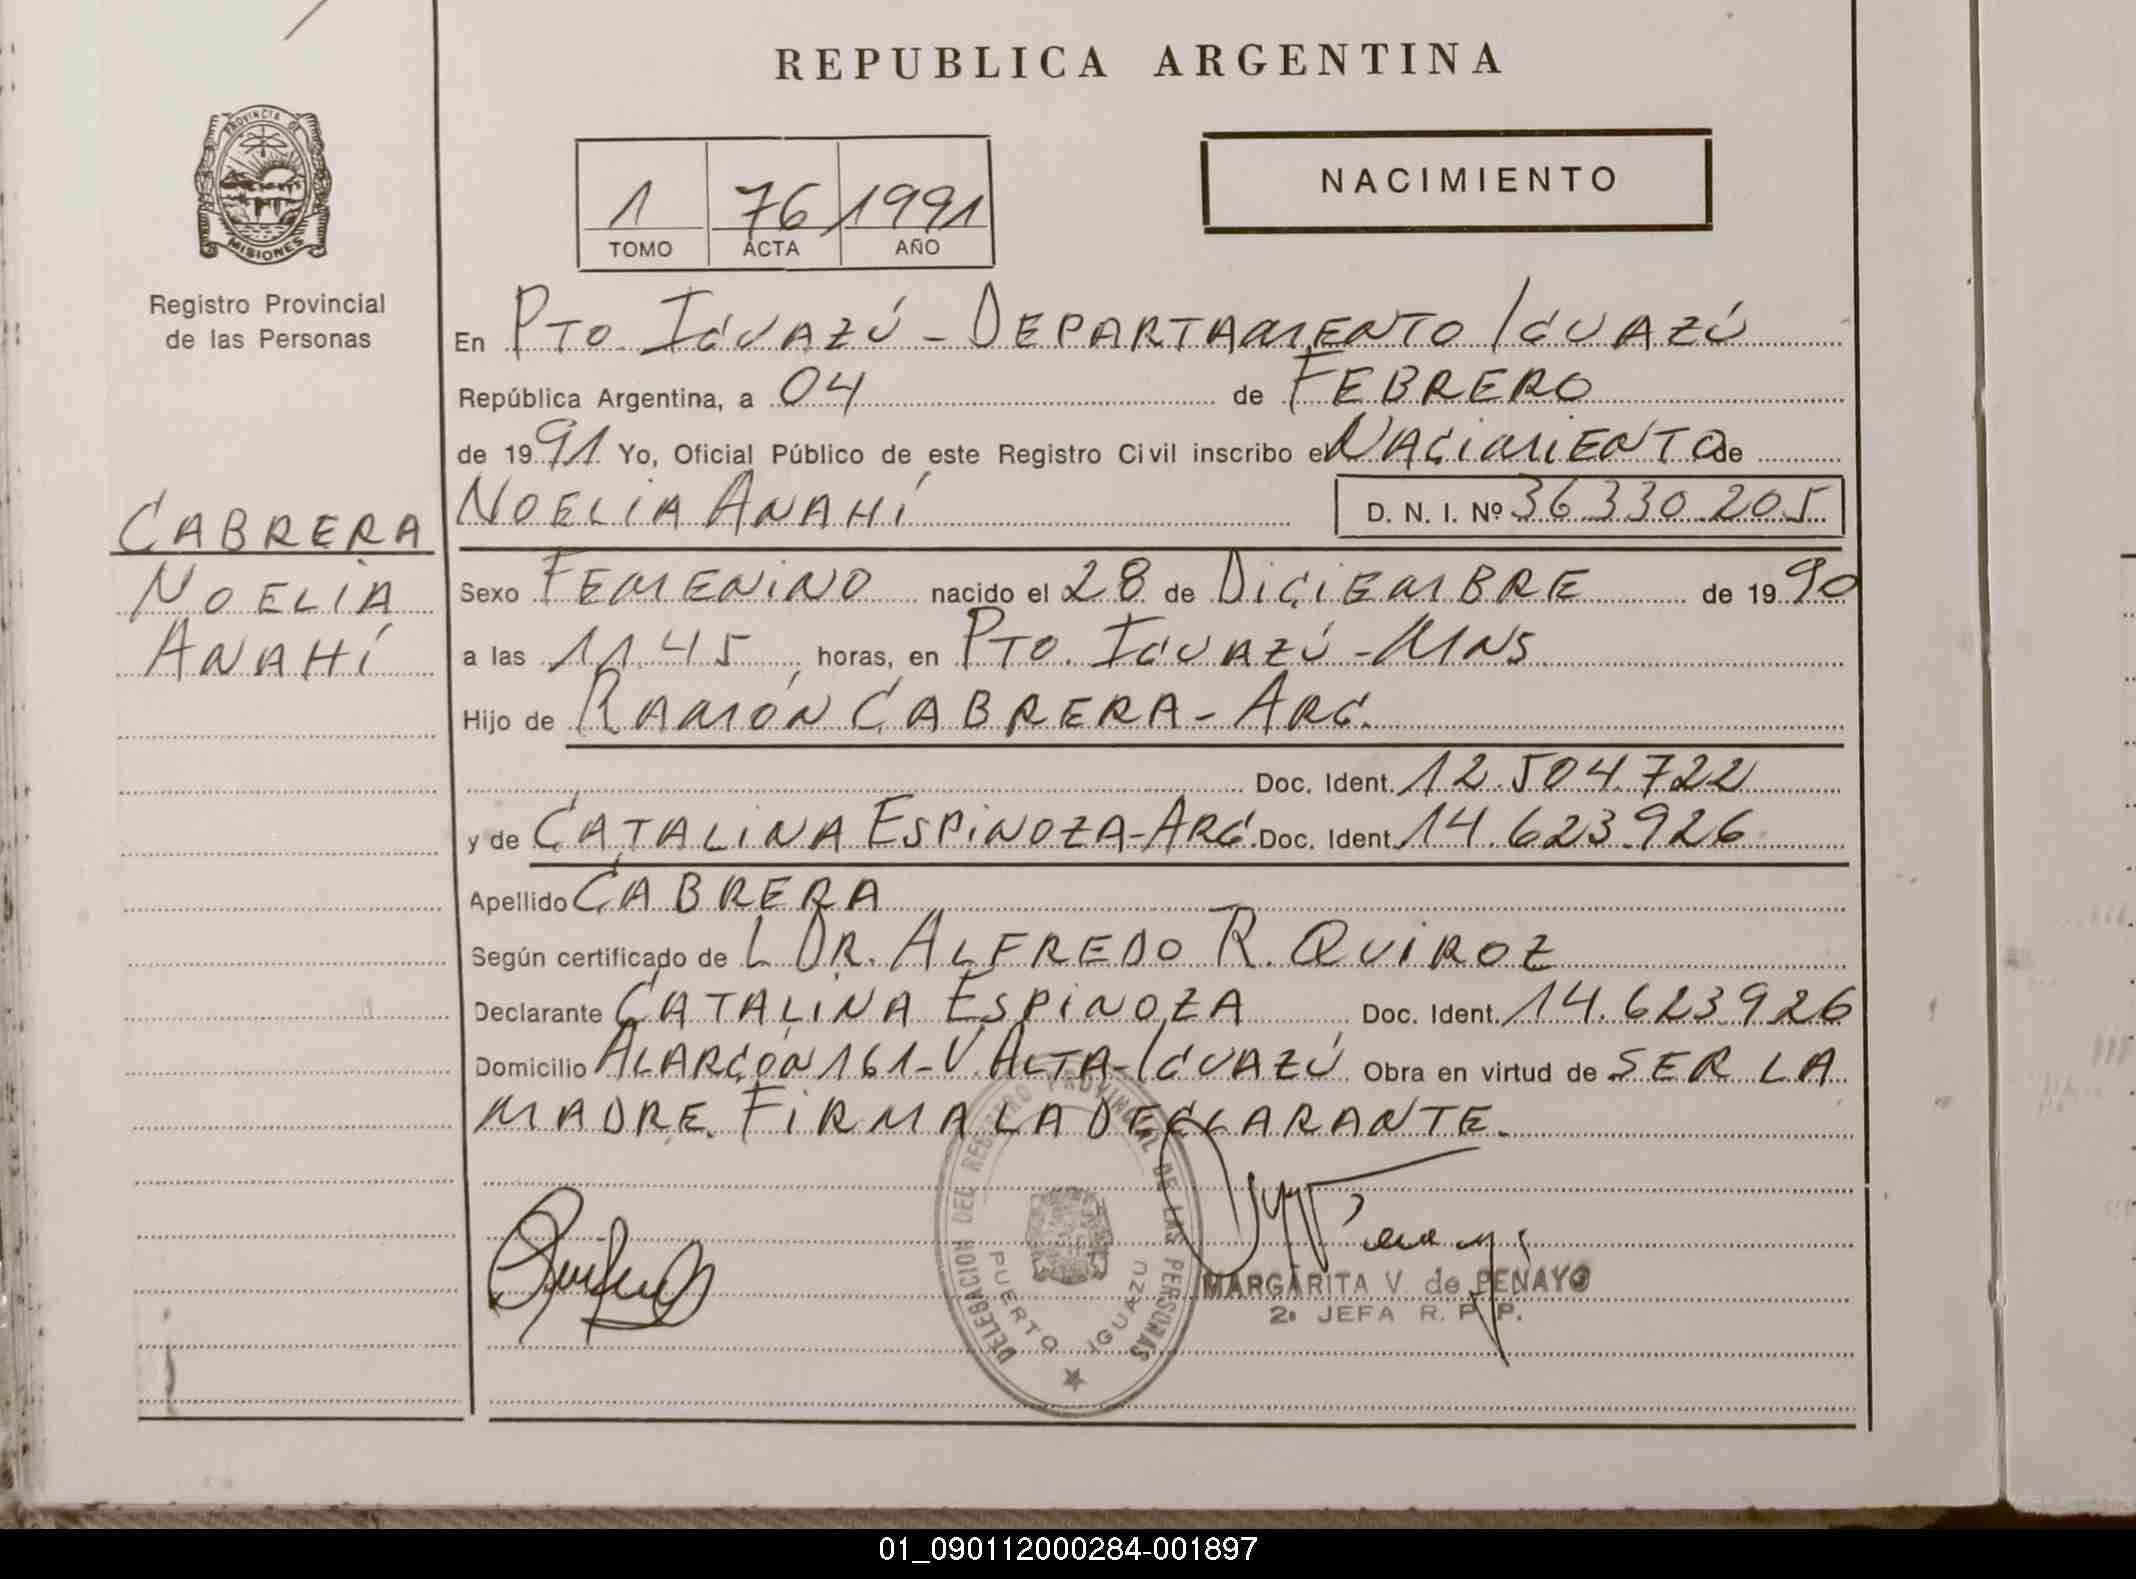 REPUBLICA ARGENTINA
PROVINCIA DE MISIONES
Registro Provincial
de las Personas
1 76 1991
TOMO ACTA AÑO
NACIMIENTO
En PTO. IGUAZÚ - DEPARTAMENTO IGUAZÚ
República Argentina, a 04 de FEBRERO
de 1991 Yo, Oficial Público de este Registro Civil inscribo el NACIMIENTO de
NOELIA ANAHÍ D. N. I. Nº 36.330.205
CABRERA
NOELIA
ANAHÍ
Sexo FEMENINO nacido el 28 de DICIEMBRE de 1990
a las 11.45 horas, en PTO. IGUAZÚ - MNS
Hijo de RAMÓN CABRERA - ARG.
Doc. Ident. 12.504.722
y de CATALINA ESPINOZA - ARG. Doc. Ident. 14.623.926
Apellido CABRERA
Según certificado de L DR. ALFREDO R. QUIROZ
Declarante CATALINA ESPINOZA Doc. Ident. 14.623.926
Domicilio ALARCÓN 161 - V. ALTA - IGUAZÚ Obra en virtud de SER LA
MADRE. FIRMA LA DECLARANTE.
DELEGACION DEL REGISTRO PROVINCIAL DE LAS PERSONAS
PUERTO IGUAZU
MARGARITA V. de PENAYO
2a JEFA R. P. P.
01_090112000284-001897